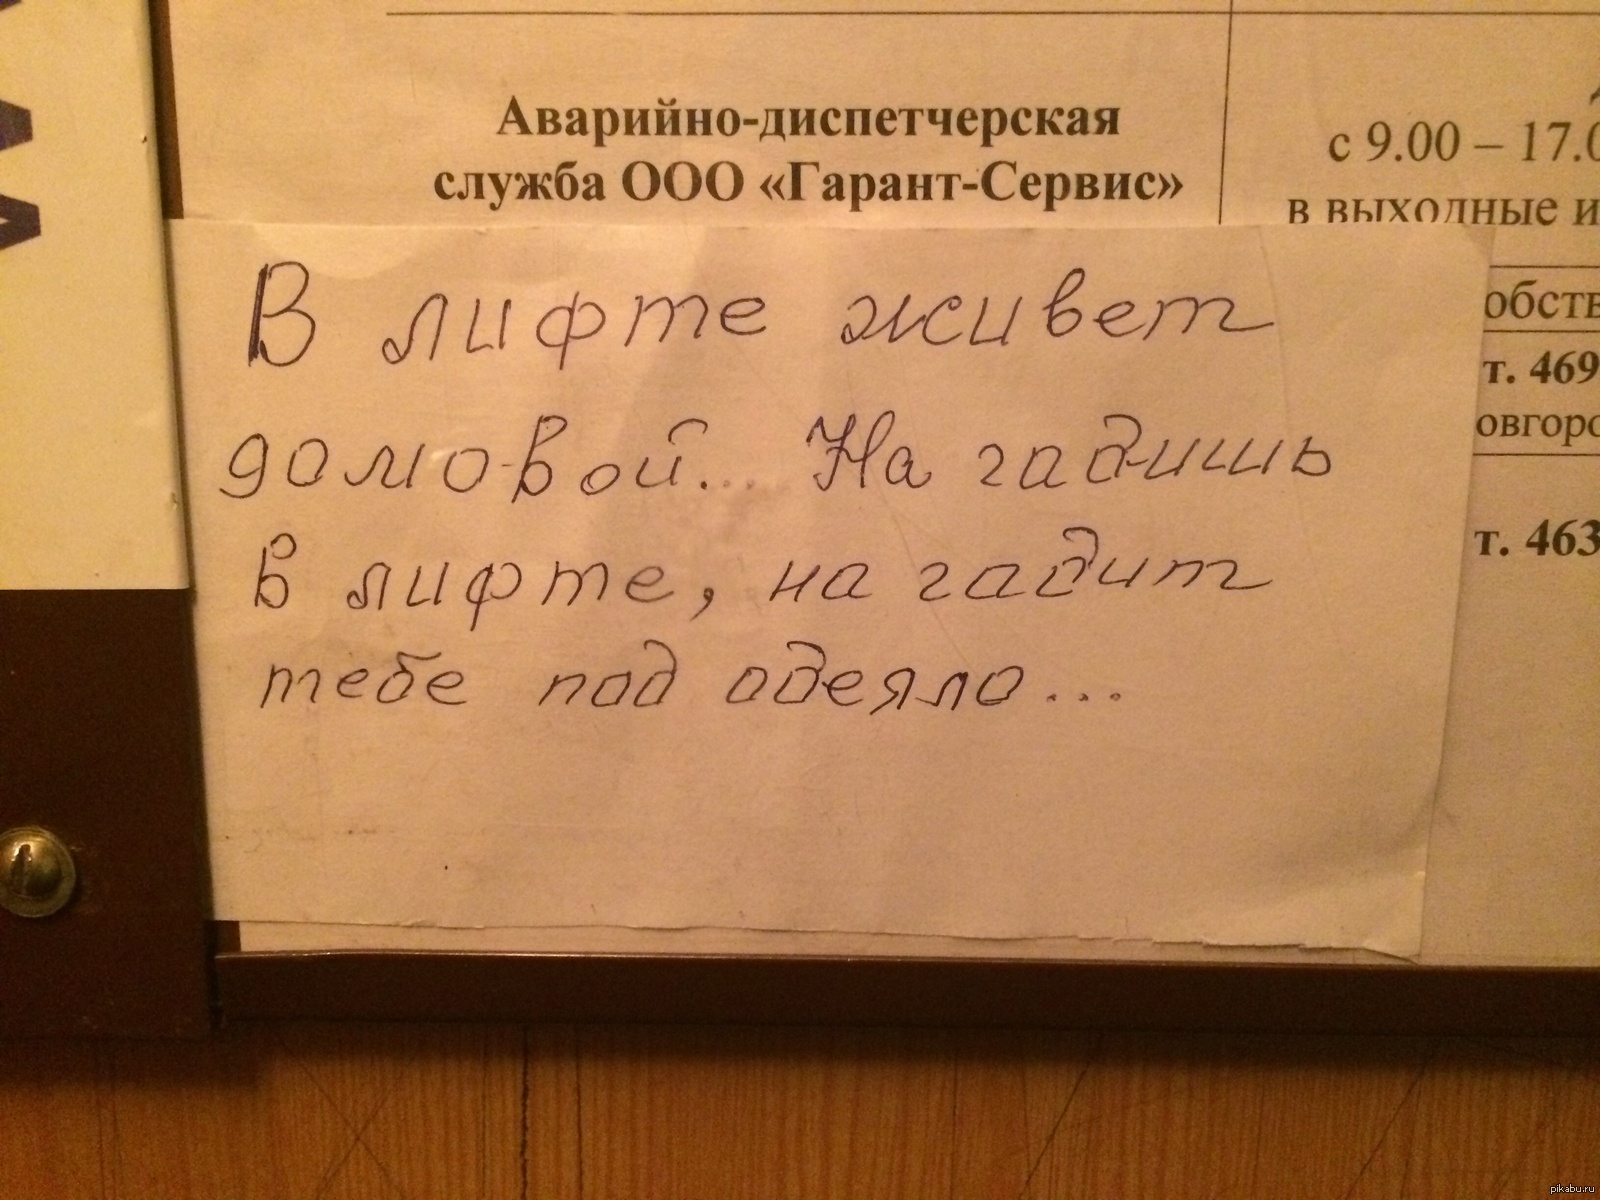 Аварийно-диспетчерская
служба ООО «Гарант-Сервис»
с 9.00 – 17.0
в выходные и
обств
т. 469
овгоро
т. 463
В лифте живет
домовой... На гадишь
в лифте, на гадит
тебе под одеяло...
pikabu.ru